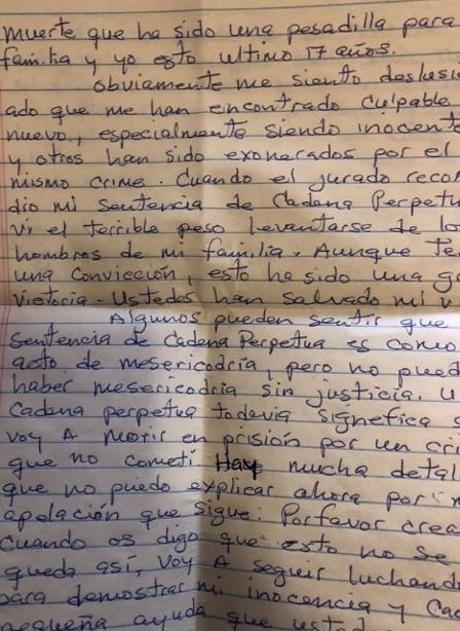 muerte que ha sido una pesadilla para
familia y yo esto ultimo 17 años.
obviamente me siento deslusi
ado que me han encontrado culpable
nuevo, especialmente siendo inocente
y otros han sido exonerados por el
mismo crime. Cuando el jurado recon
dio mi sentencia de Cadena Perpetu
vi el terrible peso levantarse de lo
hombres de mi familia. Aunque te
una convicción, esto ha sido una g
victoria. Ustedes han salvado mi v
Algunos pueden sentir que
sentencia de Cadena Perpetua es como
acto de mesericodria, pero no pued
haber mesericodria sin justicia. U
Cadena perpetua todavia signefica q
voy A morir en prisión por un cri
que no cometí Hay mucha detal
que no puedo explicar ahora por m
apelación que sigue. Porfavor crea
Cuando os digo que esto no se
queda así, voy A seguir luchand
para demostrar mi inocencia y Cad
pequeña ayuda que usted